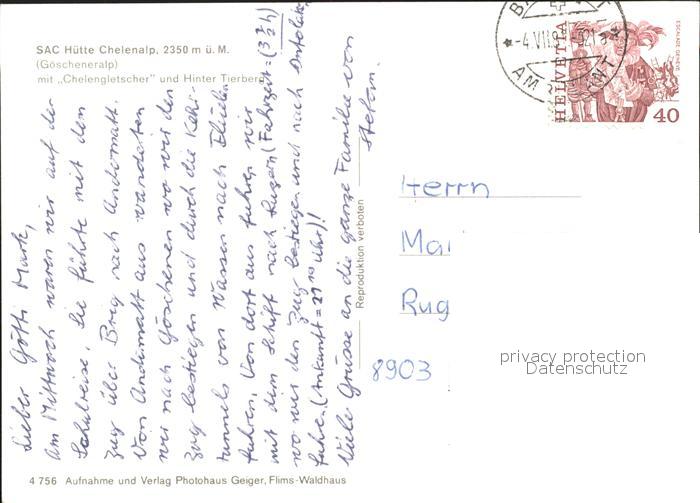 SAC Hütte Chelenalp, 2350 m ü. M.
(Göscheneralp)
mit „Chelengletscher" und Hinter Tierberg
Lieber Götti Mark,
Am Mittwoch waren wir auf der
Schulreise. Sie führte mit dem
Zug über Brig nach Andermatt.
Von Andermatt aus wanderten
wir nach Göschenen wo wir den
Zug bestiegen und durch die Kehr-
tunnels von Wassen nach Flüelen
fuhren. Von dort aus fuhren wir
mit dem Schiff nach Luzern (Fahrzeit = (3 ½ h)
wo wir den Zug bestiegen und nach
fuhren (Ankunft = 21 Uhr)!
Viele Grüsse an die ganze Familie von
Stefan.
Reproduktion verboten
-4.VII.8
HELVETIA
ESCALADE GENEVE
40
Herrn
Mar
Rug
8903
privacy protection
Datenschutz
4 756 Aufnahme und Verlag Photohaus Geiger, Flims-Waldhaus